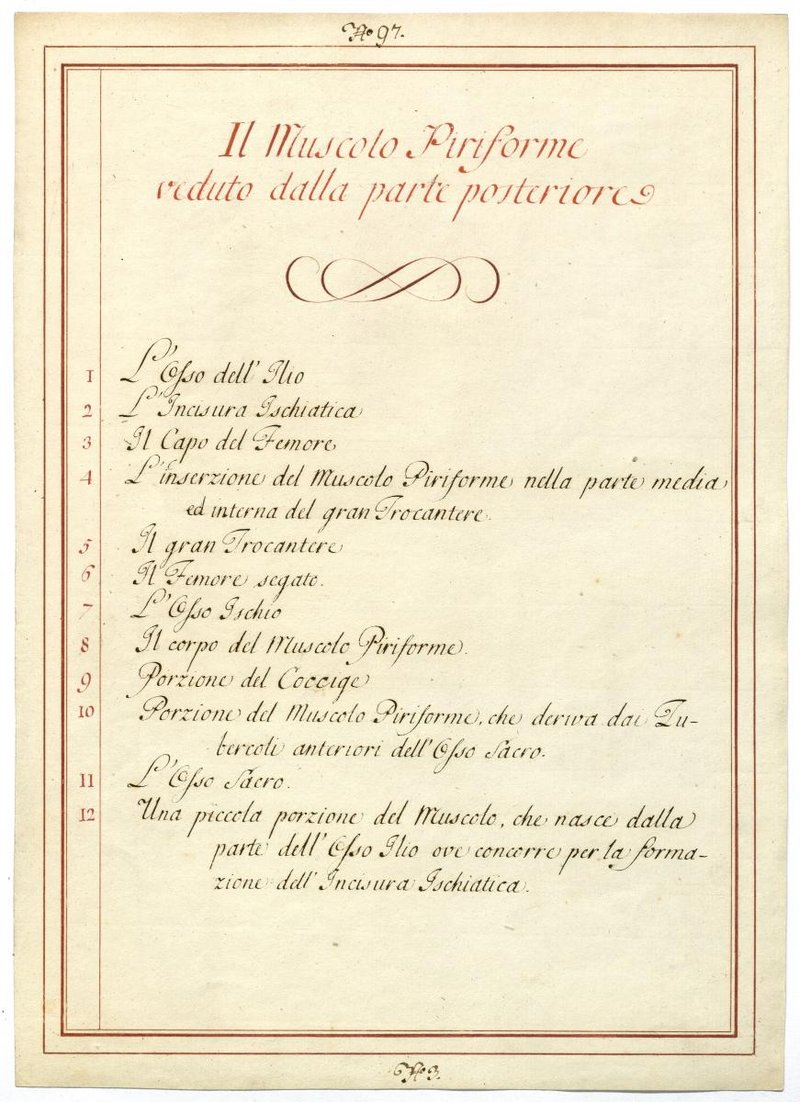 No 97.
Il Muscolo Piriforme
veduto dalla parte posteriore
1 L'Osso dell' Ilio
2 L'Incisura Ischiatica
3 Il Capo del Femore
4 L'inserzione del Muscolo Piriforme nella parte media
ed interna del gran Trocantere.
5 Il gran Trocantere
6 Il Femore segato.
7 L'Osso Ischio
8 Il corpo del Muscolo Piriforme.
9 Porzione del Coccige
10 Porzione del Muscolo Piriforme, che deriva dai Tu-
bercoli anteriori dell'Osso Sacro.
11 L'Osso Sacro.
12 Una piccola porzione del Muscolo, che nasce dalla
parte dell' Osso Ilio ove concorre per la forma-
zione dell' Incisura Ischiatica.
No 3.